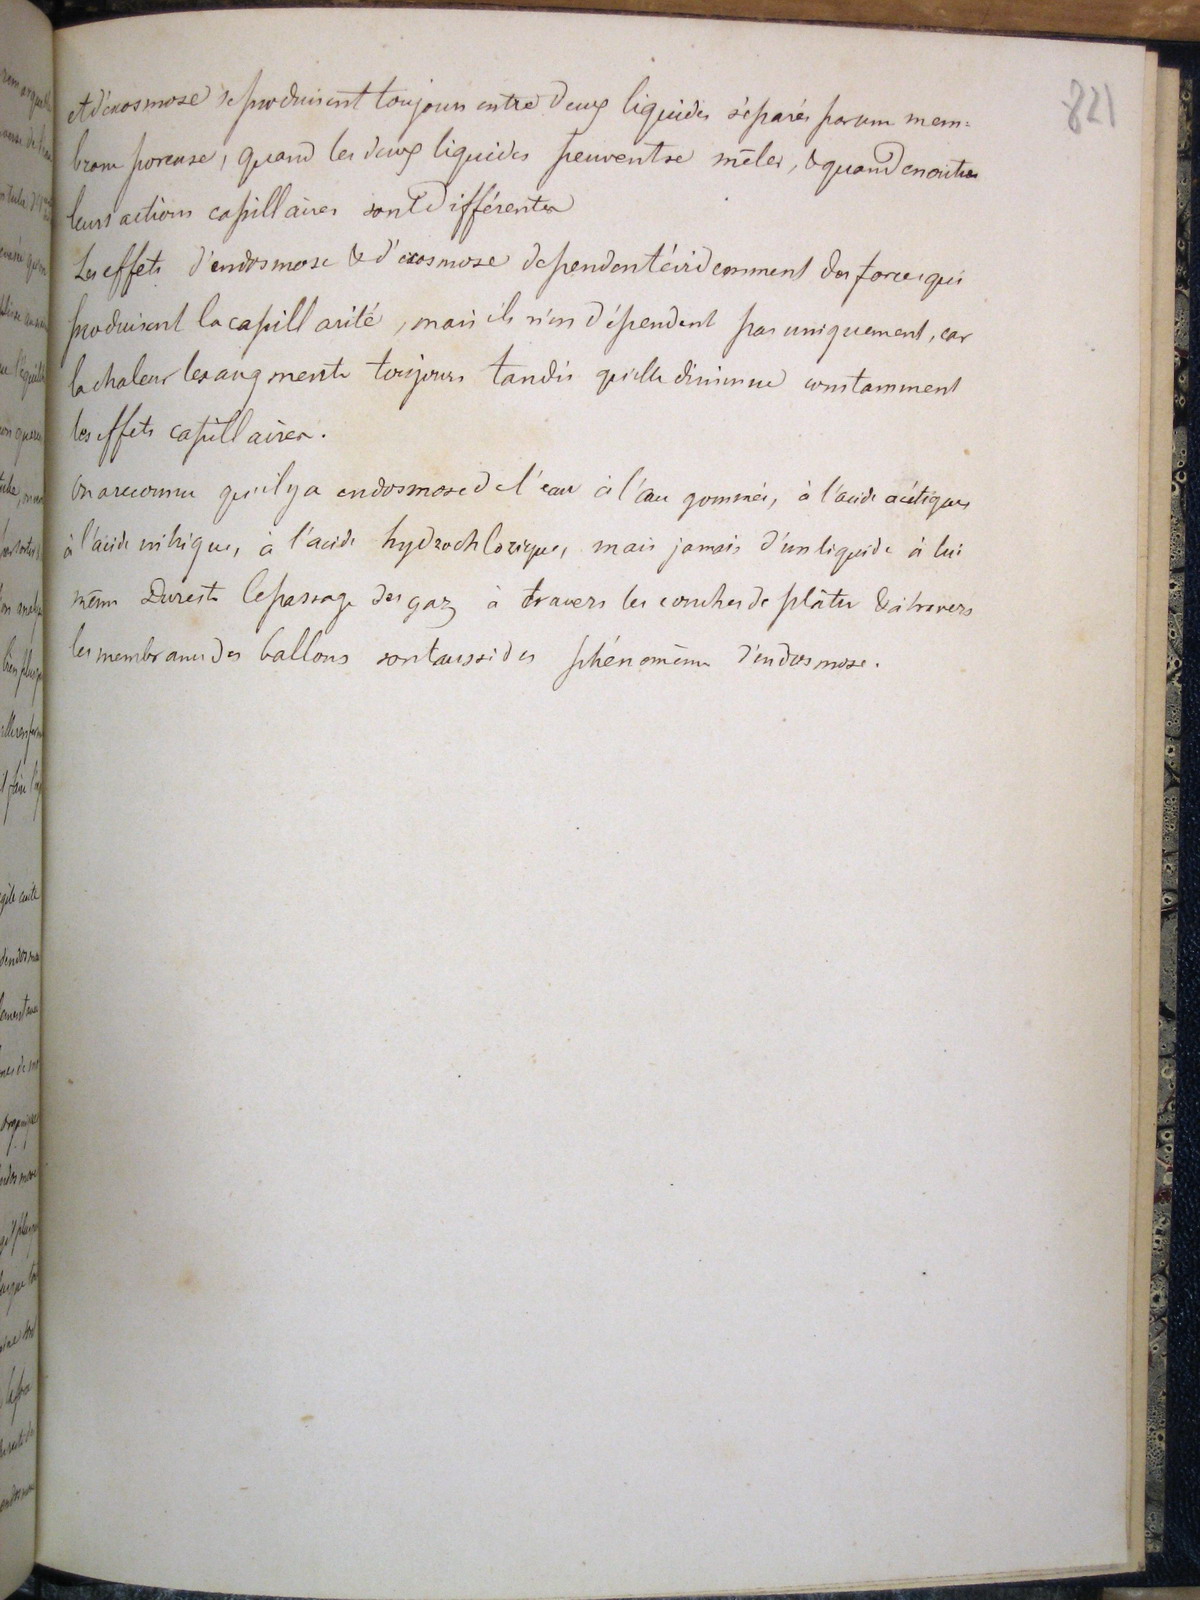 821
et d'exosmose se produisent toujours entre deux liquides séparés par une mem=
brane poreuse, quand les deux liquides peuvent se mêler, & quand en outre
leurs actions capillaires sont différentes
Les effets d'endosmose & d'exosmose dependent évidemment des forces qui
produisent la capillarité, mais ils n'en dépendent pas uniquement, car
la chaleur les augmente toujours tandis qu'elle diminue constamment
les effets capillaires.
On a reconnu qu'il y a endosmose de l'eau à l'eau gommée, à l'acide acétique,
à l'acide nitrique, à l'acide hydrochlorique, mais jamais d'un liquide à lui
même Du reste le passage des gaz à travers les couches de plâtre & à travers
les membranes des ballons sont aussi des phénomènes d'endosmose.